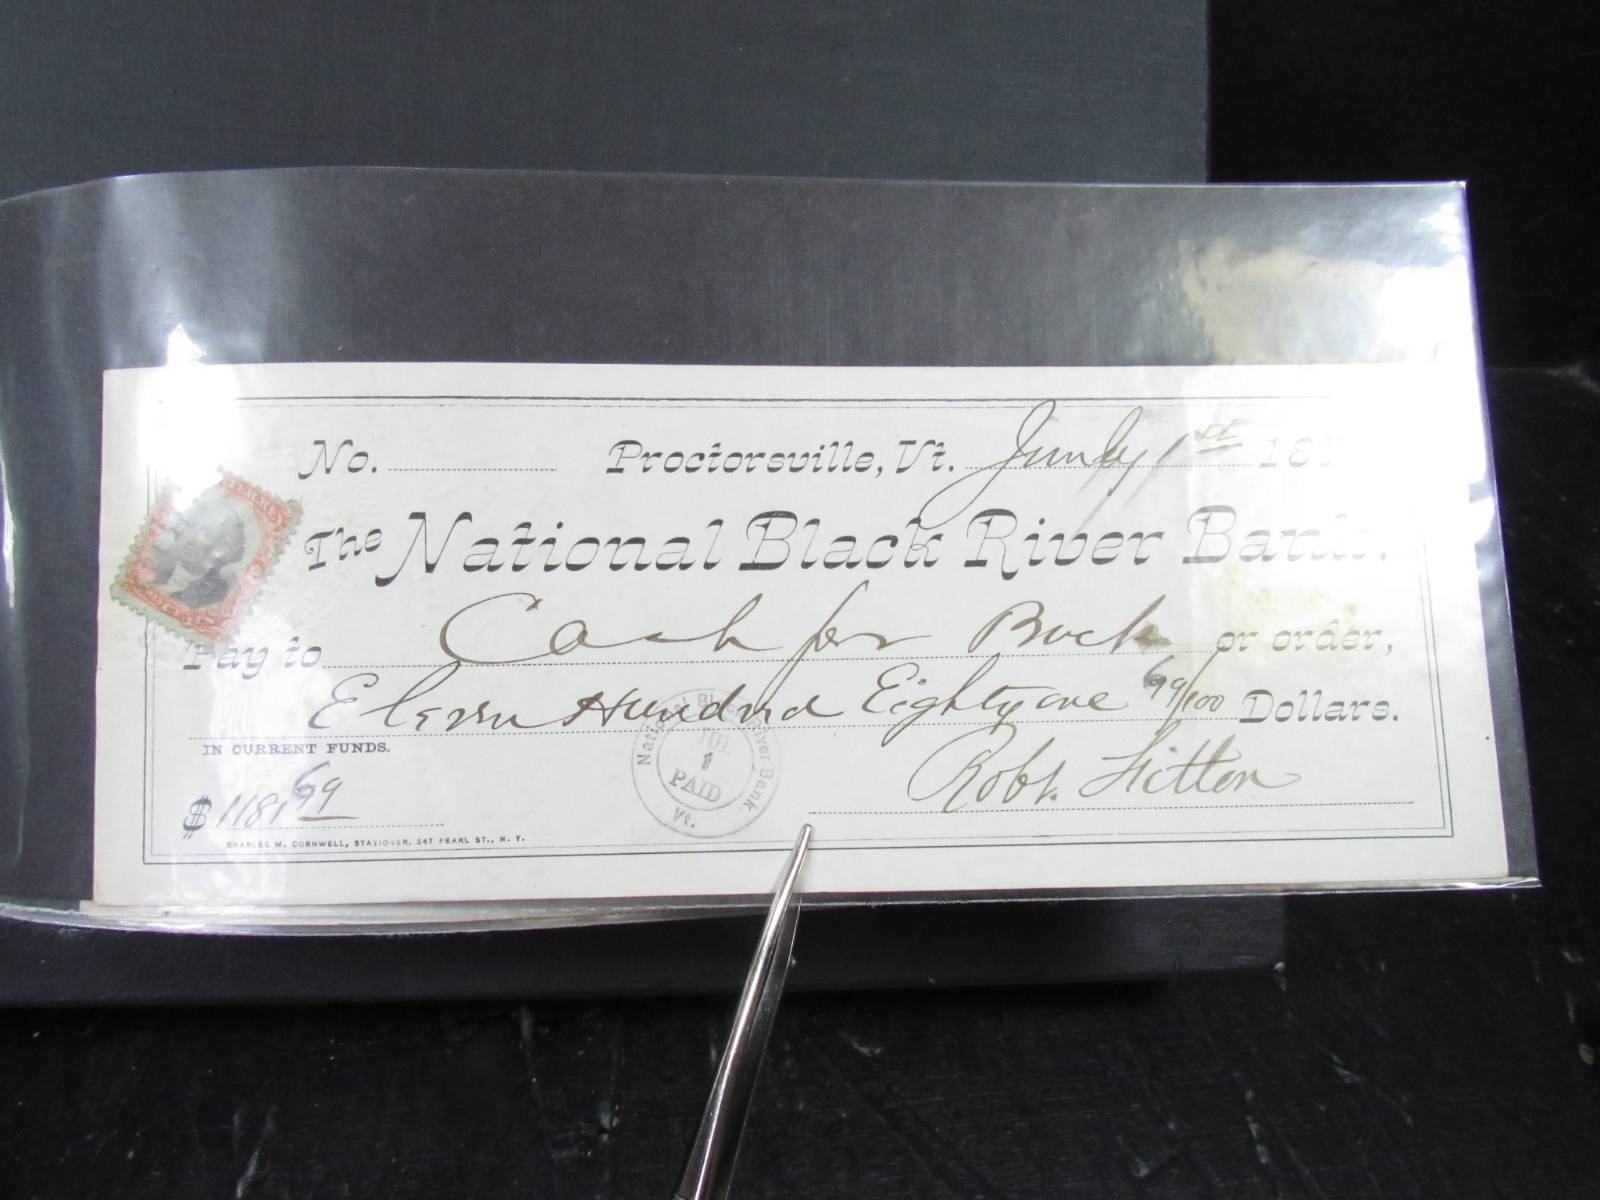 No. Proctorsville, Vt. July 1st 187
The National Black River Bank.
Pay to Cash for Buck or order,
Eleven Hundred Eighty one 69/100 Dollars.
IN CURRENT FUNDS.
$1181 69
Robt. Fitton
National Black River Bank.
JUL
1
PAID
Vt.
CHARLES M. CORNWELL, STATIONER, 247 PEARL ST., N. Y.